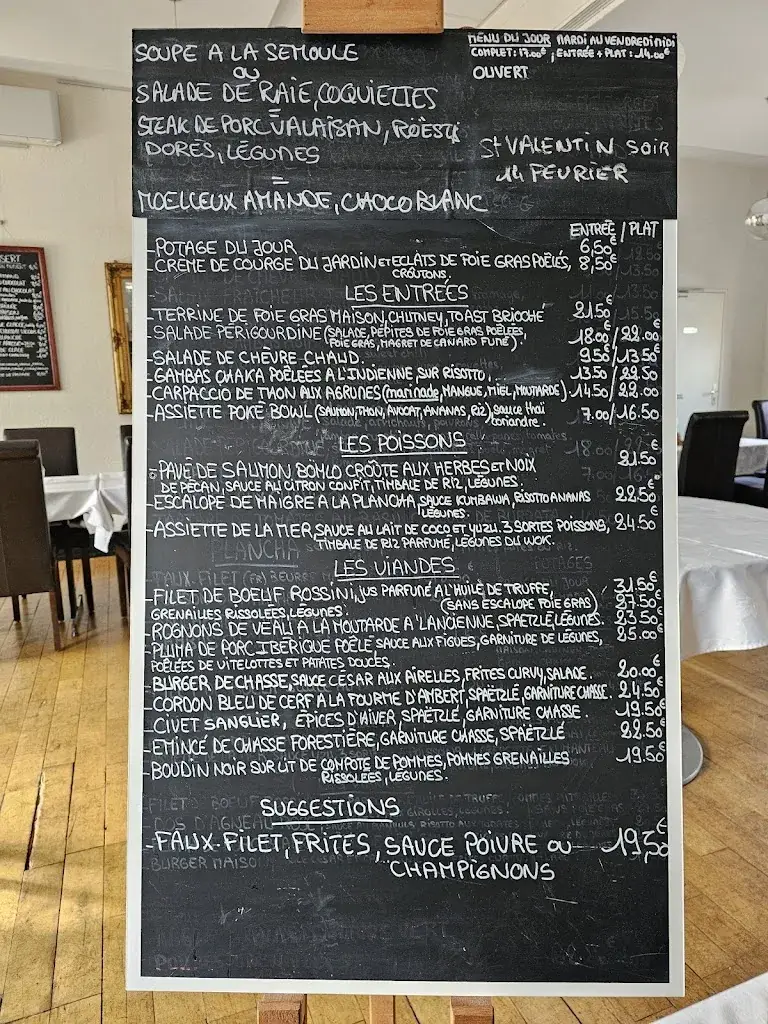 SOUPE A LA SEMOULE
OU
SALADE DE RAIE, COQUIETTES
STEAK DE PORC VALAISAN, RÖESTI
DORES, LÉGUMES
MOELLEUX AMANDE, CHOCO BLANC
MENU DU JOUR MARDI AU VENDREDI MIDI
COMPLET: 17.00€, ENTRÉE + PLAT: 14.00€
OUVERT
St VALENTIN SOIR
14 FEVRIER
ENTRÉE / PLAT
- POTAGE DU JOUR 6,50€
- CREME DE COURGE DU JARDIN ET ECLATS DE FOIE GRAS POÊLÉS, 8,50€
CROÛTONS.
LES ENTRÉES
- TERRINE DE FOIE GRAS MAISON, CHUTNEY, TOAST BRIOCHÉ 21.50€
- SALADE PÉRIGOURDINE (SALADE, PÉPITES DE FOIE GRAS POÊLÉES, 18.00 / 22.00€
FOIE GRAS, MAGRET DE CANARD FUMÉ).
- SALADE DE CHÈVRE CHAUD. 9.50 / 13.50€
- GAMBAS CHAKA POÊLÉES A L'INDIENNE SUR RISOTTO. 13.50 / 22.50
- CARPACCIO DE THON AUX AGRUMES (marinade, MANGUE, MIEL, MOUTARDE). 14.50 / 22.00€
- ASSIETTE POKÉ BOWL (SAUMON, THON, AVOCAT, ANANAS, RIZ) sauce thaï 7.00 / 16.50€
coriandre.
LES POISSONS
- PAVÉ DE SAUMON BÖMLO CROÛTE AUX HERBES ET NOIX 21.50€
DE PÉCAN, SAUCE AU CITRON CONFIT, TIMBALE DE RIZ, LÉGUMES.
- ESCALOPE DE MAIGRE A LA PLANCHA, SAUCE KUMBAWA, RISOTTO ANANAS 22.50€
LÉGUMES.
- ASSIETTE DE LA MER, SAUCE AU LAIT DE COCO ET YUZU. 3 SORTES POISSONS, 24.50€
TIMBALE DE RIZ PARFUMÉ, LÉGUMES DU WOK.
LES VIANDES
- FILET DE BOEUF ROSSINI, JUS PARFUMÉ A L'HUILE DE TRUFFE, 31,50€
GRENAILLES RISSOLÉES, LÉGUMES. (SANS ESCALOPE FOIE GRAS) 27.50€
- ROGNONS DE VEAU A LA MOUTARDE A L'ANCIENNE, SPAETZLÉ, LÉGUMES. 23.50€
- PLUMA DE PORC IBÉRIQUE POÊLÉ SAUCE AUX FIGUES, GARNITURE DE LÉGUMES, 25.00€
POÊLÉES DE VITELOTTES ET PATATES DOUCES.
- BURGER DE CHASSE, SAUCE CÉSAR AUX AIRELLES, FRITES CURVY, SALADE. 20.00€
- CORDON BLEU DE CERF A LA FOURME D'AMBERT, SPAËTZLÉ, GARNITURE CHASSE. 24.50€
- CIVET SANGLIER, ÉPICES D'HIVER, SPAËTZLÉ, GARNITURE CHASSE. 19.50€
- EMINCÉ DE CHASSE FORESTIÈRE, GARNITURE CHASSE, SPAËTZLÉ 22.50€
- BOUDIN NOIR SUR LIT DE COMPOTE DE POMMES, POMMES GRENAILLES 19.50€
RISSOLÉES, LÉGUMES.
SUGGESTIONS
- FAUX-FILET, FRITES, SAUCE POIVRE OU 19,50€
CHAMPIGNONS